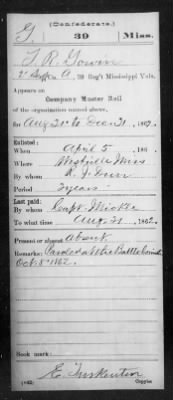 (Confederate.)
G 39 Miss.
T. R. Gowen
Co. A, 39 Reg't Mississippi Vols.
Appears on
Company Muster Roll
of the organization named above,
for Aug 31 to Dec. 31, 1862.
Enlisted:
When April 5, 186 .
Where Westville Miss
By whom R. J. Durr
Period 3 years
Last paid:
By whom Capt. Mickle
To what time Aug. 31, 1862.
Present or absent Absent
Remarks: Paroled at the Battle
Oct. 5th 1862.
Book mark:
(642)
Copyist.